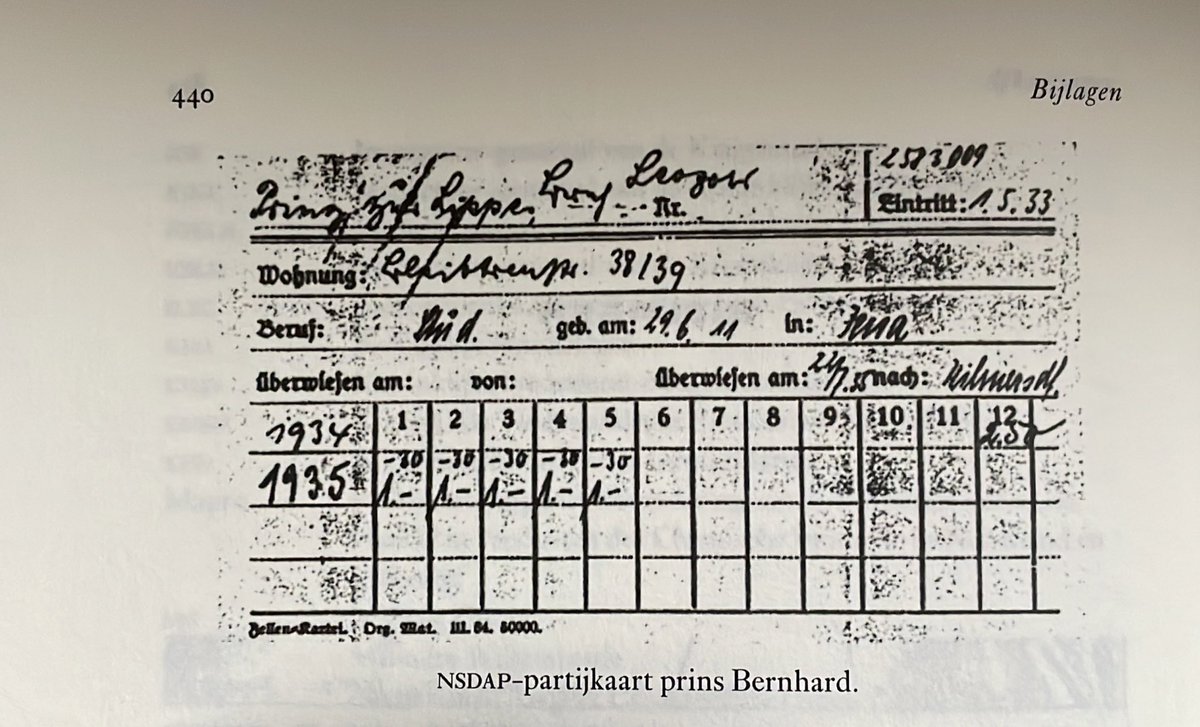 440 Bijlagen
2583009
Prinz zur Lippe, Leopold Nr. Eintritt: 1. 5. 33
Wohnung: 38/39
Beruf: Stud. geb. am: 29. 6. 11 in: Jena
überwiesen am: von: überwiesen am: nach: Wilmersdf.
1934 1 2 3 4 5 6 7 8 9 10 11 12
2,50
-30 -30 -30 -30 -30
1935 1.- 1.- 1.- 1.- 1.-
Zellen-Kartei. Org. Mat. III. 64. 50000.
NSDAP-partijkaart prins Bernhard.